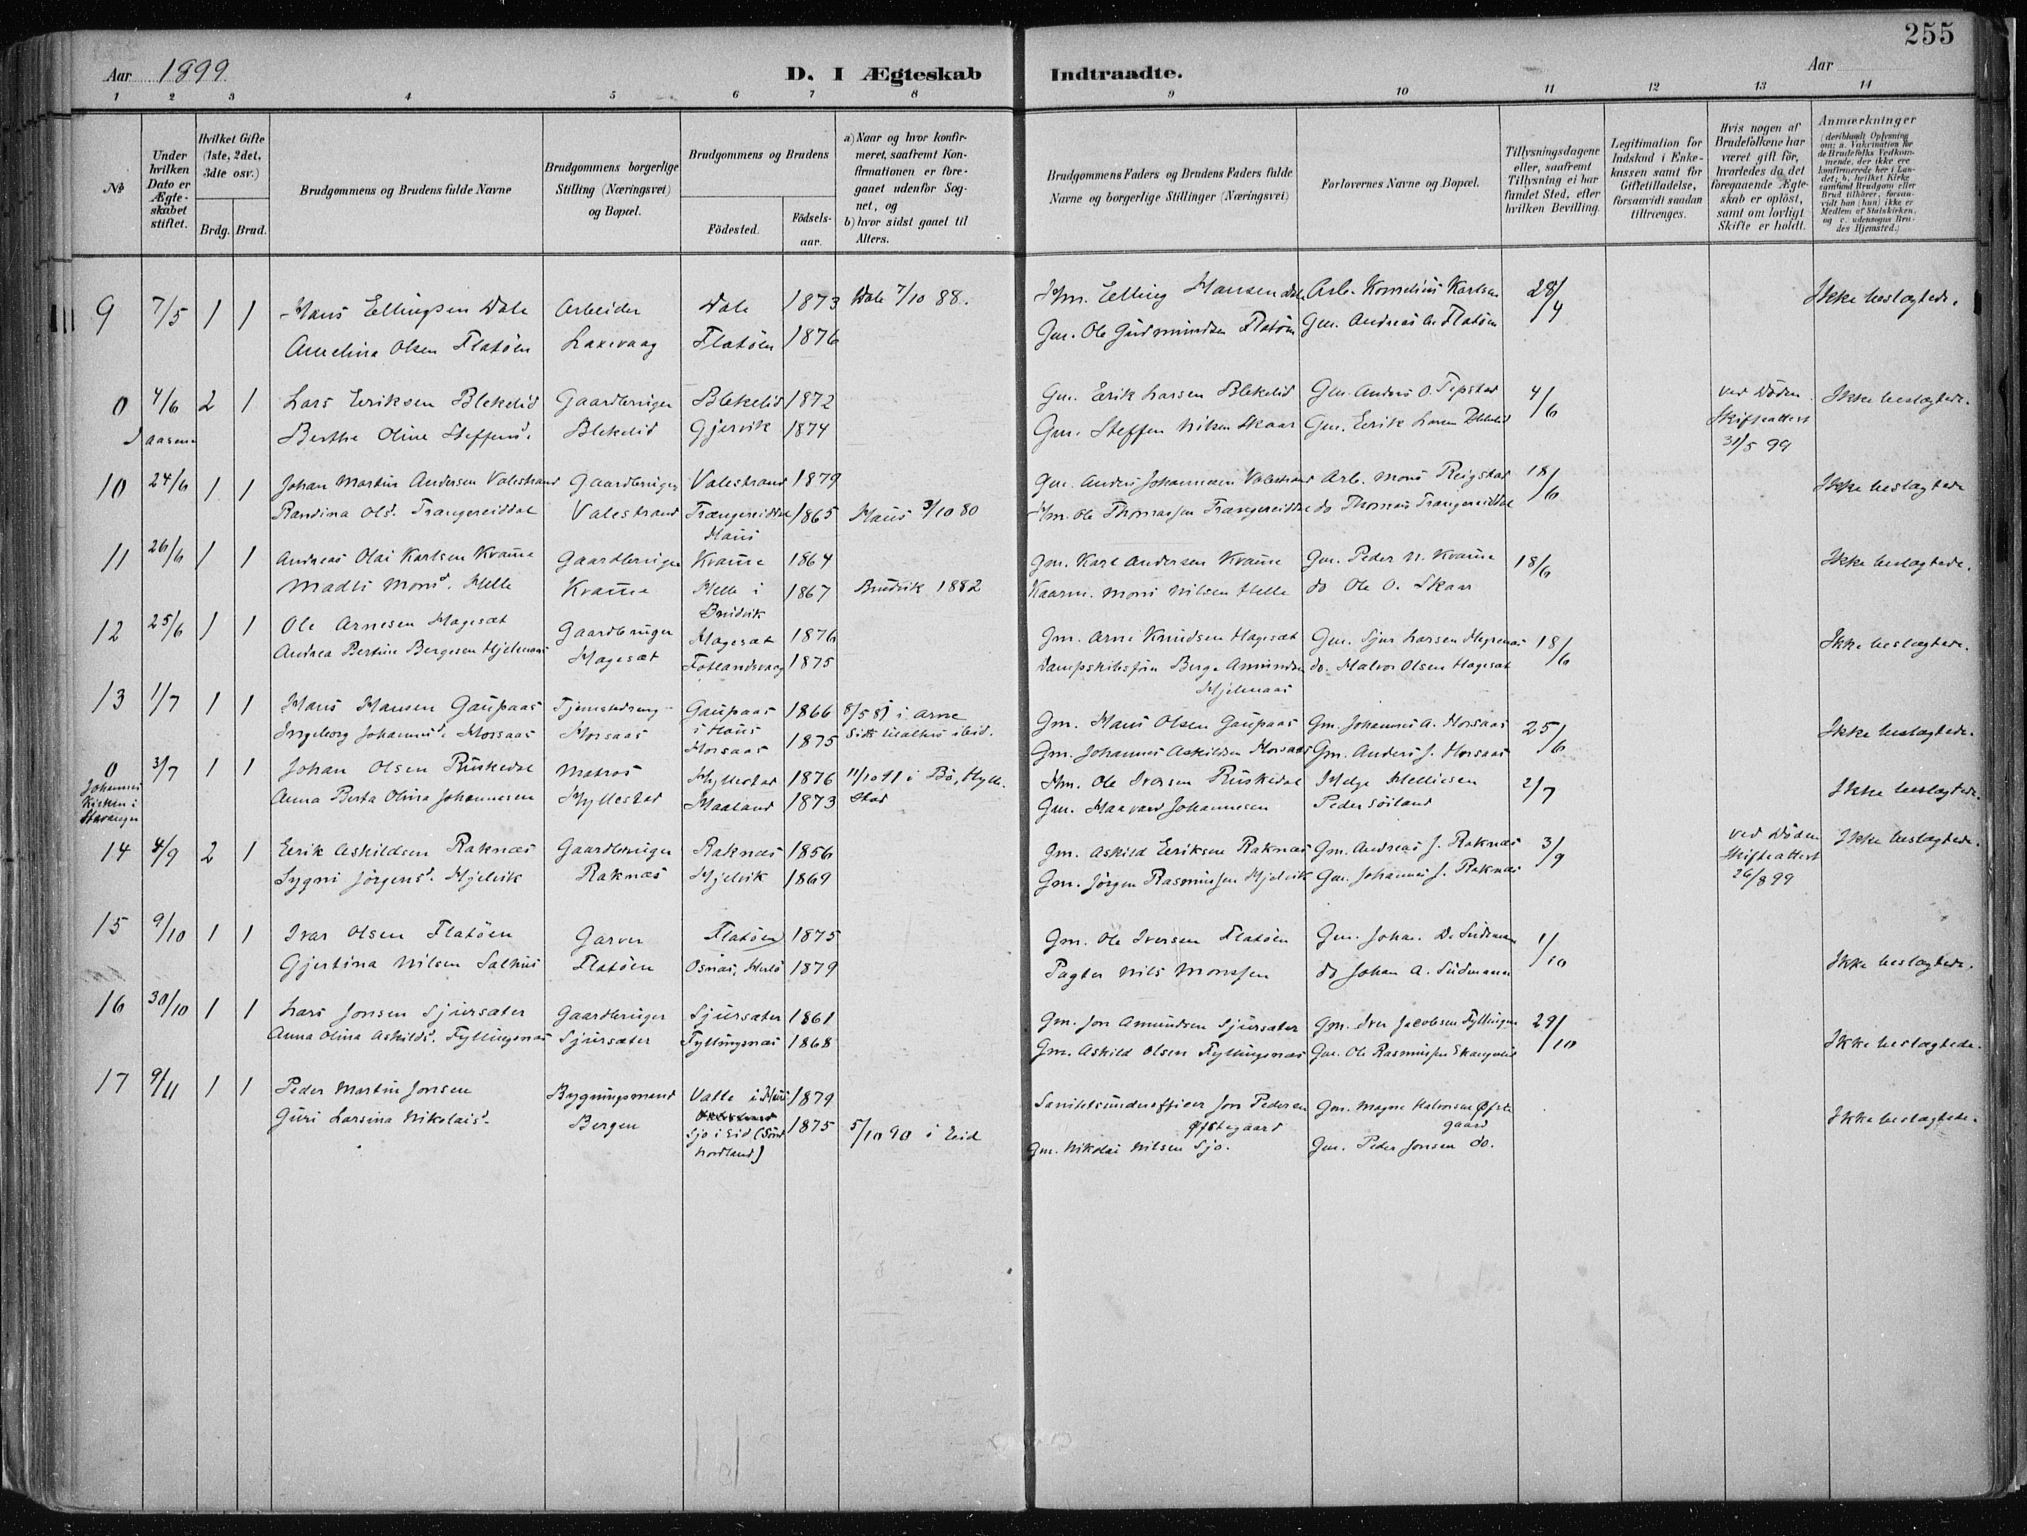 255
Aar 1899 D. I Ægteskab Indtraadte. Aar
1 2 3 4 5 6 7 8 9 10 11 12 13 14
№
Under hvilken Dato er Ægteskabet stiftet.
Hvilket Gifte (1ste, 2det, 3die osv.)
Brdg. Brud.
Brudgommens og Brudens fulde Navne
Brudgommens borgerlige Stilling (Næringsvei) og Bopæl.
Brudgommens og Brudens
Födested.
Födselsaar.
a) Naar og hvor konfirmeret, saafremt Konfirmationen er foregaaet udenfor Sognet, og
b) hvor sidst gaaet til Alters.
Brudgommens Faders og Brudens Faders fulde Navne og borgerlige Stillinger (Næringsvei)
Forlovernes Navne og Bopæl.
Tillysningsdagene eller, saafremt Tillysning ei har fundet Sted, efter hvilken Bevilling.
Legitimation for Indskud i Enkekassen samt for Giftetilladelse, forsaavidt saadan tiltrænges.
Hvis nogen af Brudefolkene har været gift för, hvorledes da det foregaaende Ægteskab er oplöst, samt om lovligt Skifte er holdt.
Anmærkninger (deriblandt Oplysning om: a. Vakcination for de Brudefolks Vedkommende, der ikke ere konfirmerede her i Landet; b. hvilket Kirkesamfund Brudgom eller Brud tilhörer, forsaavidt han (hun) ikke er Medlem af Statskirken, og c. udensogns Brudes Hjemsted.)
9 7/5 1 1 Hans Ellingsen Dale Arbeider Dale 1873 Dale 7/10 88. Hm. Elling Hansen Dale Arb. Kornelius Karlsen 28/4 Ikke beslægtede.
Aurelina Olsen Flatöen Laxevaag Flatöen 1876 Gm. Ole Gudmundsen Flatöen Gm. Andreas A. Flatöen
0 4/6 2 1 Lars Eriksen Blekelid Gaardbruger Blekelid 1872 Gm. Erik Larsen Blekelid Gm. Anders O. Tepstad 4/6 ved Döden Ikke beslægtede.
Berthe Oline Steffensd. Blekelid Gjervik 1874 Gm. Steffen Nilsen Skaar Gm. Erik Larsen Blekelid Skifteattest
31/5 99
10 24/6 1 1 Johan Martin Andersen Valestrand Gaardbruger Valestrand 1879 Gm. Anders Johannesen Valestrand Arb. Mons Reigstad 18/6 Ikke beslægtede
Randina Olsd. Trængereiddal Valestrand Trængereiddal 1865 Haus 3/10 80 Hm. Ole Thomassen Trængereiddal do Thomas Trængereiddal
Haus
11 26/6 1 1 Andreas Olai Karlsen Kvamme Gaardbruger Kvamme 1864 Gm. Karl Andersen Kvamme Gm. Peder N. Kvamme 18/6 Ikke beslægtede.
Madli Monsd. Helle Kvamme Helle i 1867 Brudvik 1882 Kaarm. Mons Nilsen Helle do Ole O. Skaar
Brudvik
12 25/6 1 1 Ole Arnesen Hagesæt Gaardbruger Hagesæt 1876 Gm. Arne Knudsen Hagesæt Gm. Sjur Larsen 18/6 Ikke beslægtede.
Andrea Bertine Bergesen Hjelmaas Hagesæt Fotlandsvaag 1875 Dampskibsfrn Berge Amundsen do. Halvor Olsen Hagesæt
Hjelmaas
13 1/7 1 1 Hans Hansen Gaupaas Tjenestedreng Gaupaas 1866 8/5 81 i Arne Gm. Hans Olsen Gaupaas Gm. Johannes A. Horsaas 25/6 Ikke beslægtede.
i Haus
Ingeborg Johannesd. Horsaas Horsaas Horsaas 1875 Sidst til alters ibid. Gm. Johannes Askildsen Horsaas Gm. Anders J. Horsaas
0 3/7 1 1 Johan Olsen Ruskedal Matros Hyllestad 1876 11/10 91 i Bö, Hylle- Hm. Ole Iversen Ruskedal Helge Helliesen 2/7 Ikke beslægtede.
Johannes Kirken i Stavanger Anna Berta Olina Johannesen Hyllestad Haaland 1873 stad Gm. Haavard Johannesen Peder Söiland
14 4/9 2 1 Erik Askildsen Raknæs Gaardbruger Raknæs 1856 Gm. Askild Eriksen Raknæs Gm. Andreas J. Raknæs 3/9 ved Döden Ikke beslægtede.
Sygni Jörgensd. Hjelvik Raknæs Hjelvik 1869 Gm. Jörgen Rasmussen Hjelvik Gm. Johannes J. Raknæs Skifteattest
26/8 99
15 9/10 1 1 Ivar Olsen Flatöen Garver Flatöen 1875 Gm. Ole Iversen Flatöen Gm. Johan D. Sudmann 1/10 Ikke beslægtede.
Gjertina Nilsen Salhus Flatöen Osnæs, Herlö 1879 Pagter Nils Monssen do Johan A. Sudmann
16 30/10 1 1 Lars Jonsen Sjursæter Gaardbruger Sjursæter 1861 Gm. Jon Amundsen Sjursæter Gm. Iver Jacobsen Fyllingen 29/10 Ikke beslægtede.
Anna Olina Askildsd. Fyllingsnæs Sjursæter Fyllingsnæs 1868 Gm. Askild Olsen Fyllingsnæs Gm. Ole Rasmussen
17 9/11 1 1 Peder Martin Jonsen Bygningsmand Valle i Haus 1879 Sanitetsunderofficer Jon Pedersen Gm. Magne Halvorsen Öfste- Ikke beslægtede.
Öfstegaard gaard
Guri Larsina Nikolaisd. Bergen Sjo i Eid (Sönd 1875 5/10 90 i Eid Gm. Nikolai Nilsen Sjo. Gm. Peder Jonsen do.
Nordland)